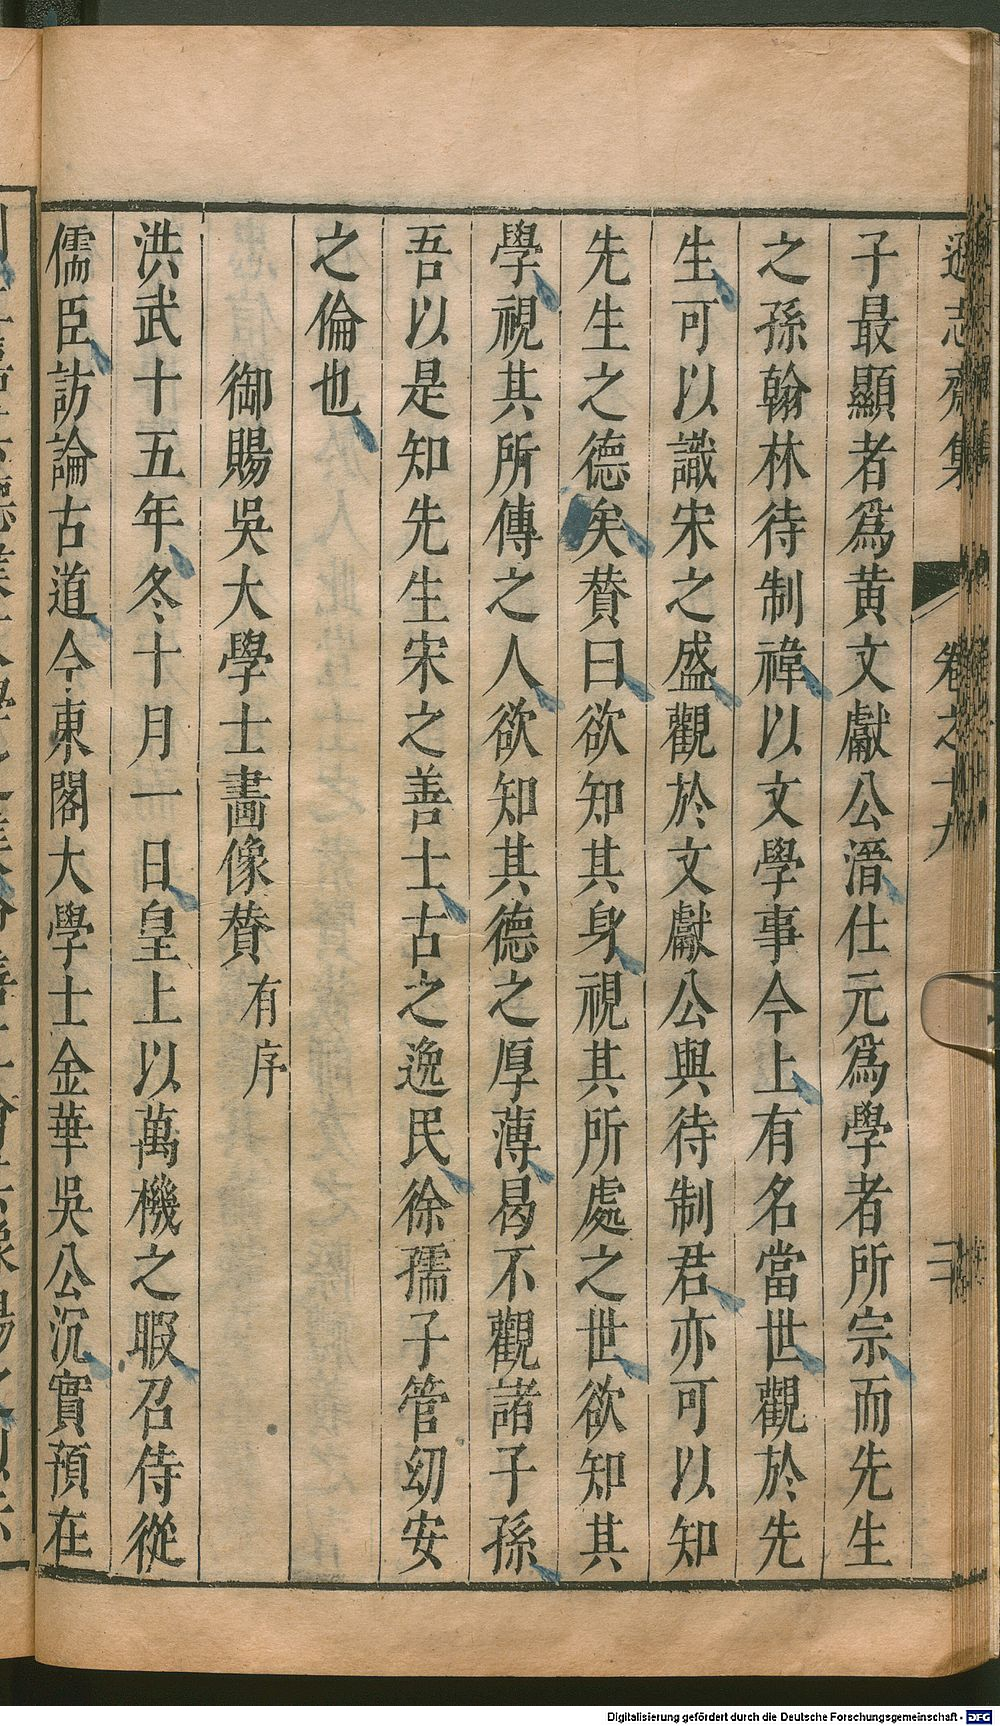 遜志齋集 卷之十九
子最顯者爲黄文獻公溍仕元爲學者所宗而先生
之孫翰林待制禕以文學事今上有名當世觀於先
生可以識宋之盛觀於文獻公與待制君亦可以知
先生之德矣賛曰欲知其身視其所處之世欲知其
學視其所傳之人欲知其德之厚薄曷不觀諸子孫
吾以是知先生宋之善士古之逸民徐孺子管幼安
之倫也
御賜吳大學士畫像賛 有序
洪武十五年冬十月一日皇上以萬機之暇召侍從
儒臣訪論古道今東閣大學士金華吳公沉實預在
Digitalisierung gefördert durch die Deutsche Forschungsgemeinschaft - DFG